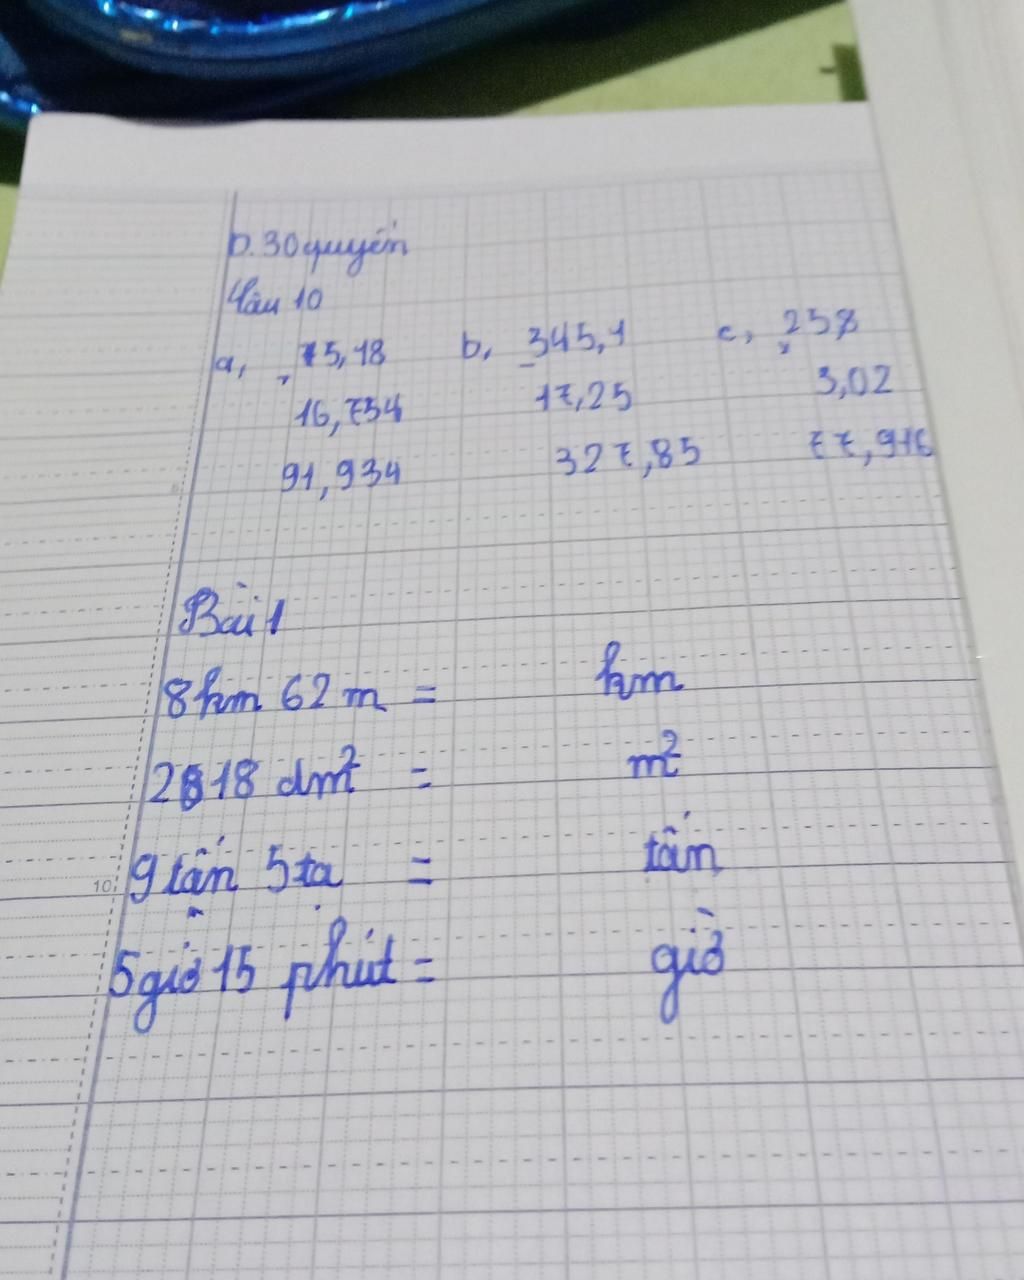 D. 30 quyển
Câu 10
a, 75,18 b, 345,1 c, 25,8
16,754 17,25 3,02
91,934 327,85 77,916
Bài 1
8 km 62 m = km
2818 dm² = m²
9 tấn 5 tạ = tấn
5 giờ 15 phút = giờ
10